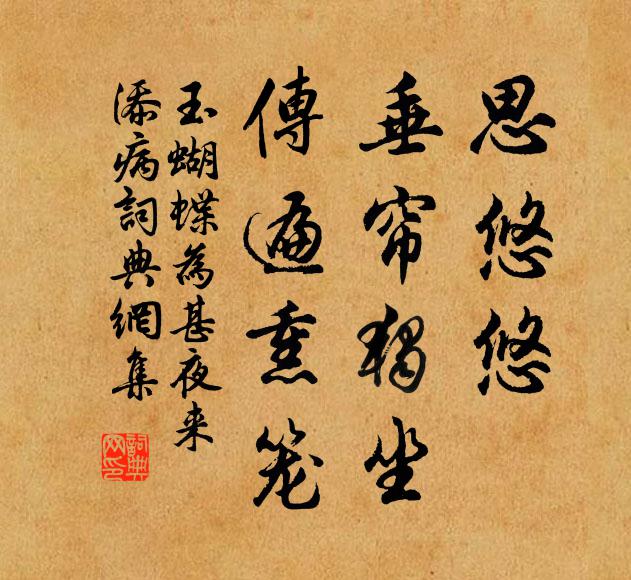 思悠悠
垂帘独坐
傳遍熏笼
玉蝴蝶為甚夜来
添病詞典網集
詞典网印